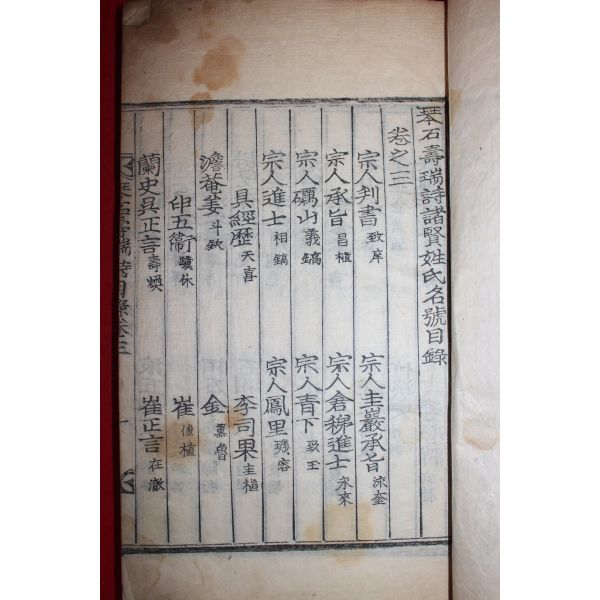 琴石壽瑞詩諸賢姓氏名號目錄
卷之三
宗人判書致庠 宗人圭巖承旨泳奎
宗人承旨昌植 宗人倉稊進士永來
宗人礪山義鎬 宗人青下致玉
宗人進士相鎬 宗人鳳里璣容
具經歷天喜 李司果圭植
澹菴姜斗欽 金薰魯
印五衛驥休 崔俊植
蘭史吳正言壽煥 崔正言在澈
壽瑞詩目錄卷三 一